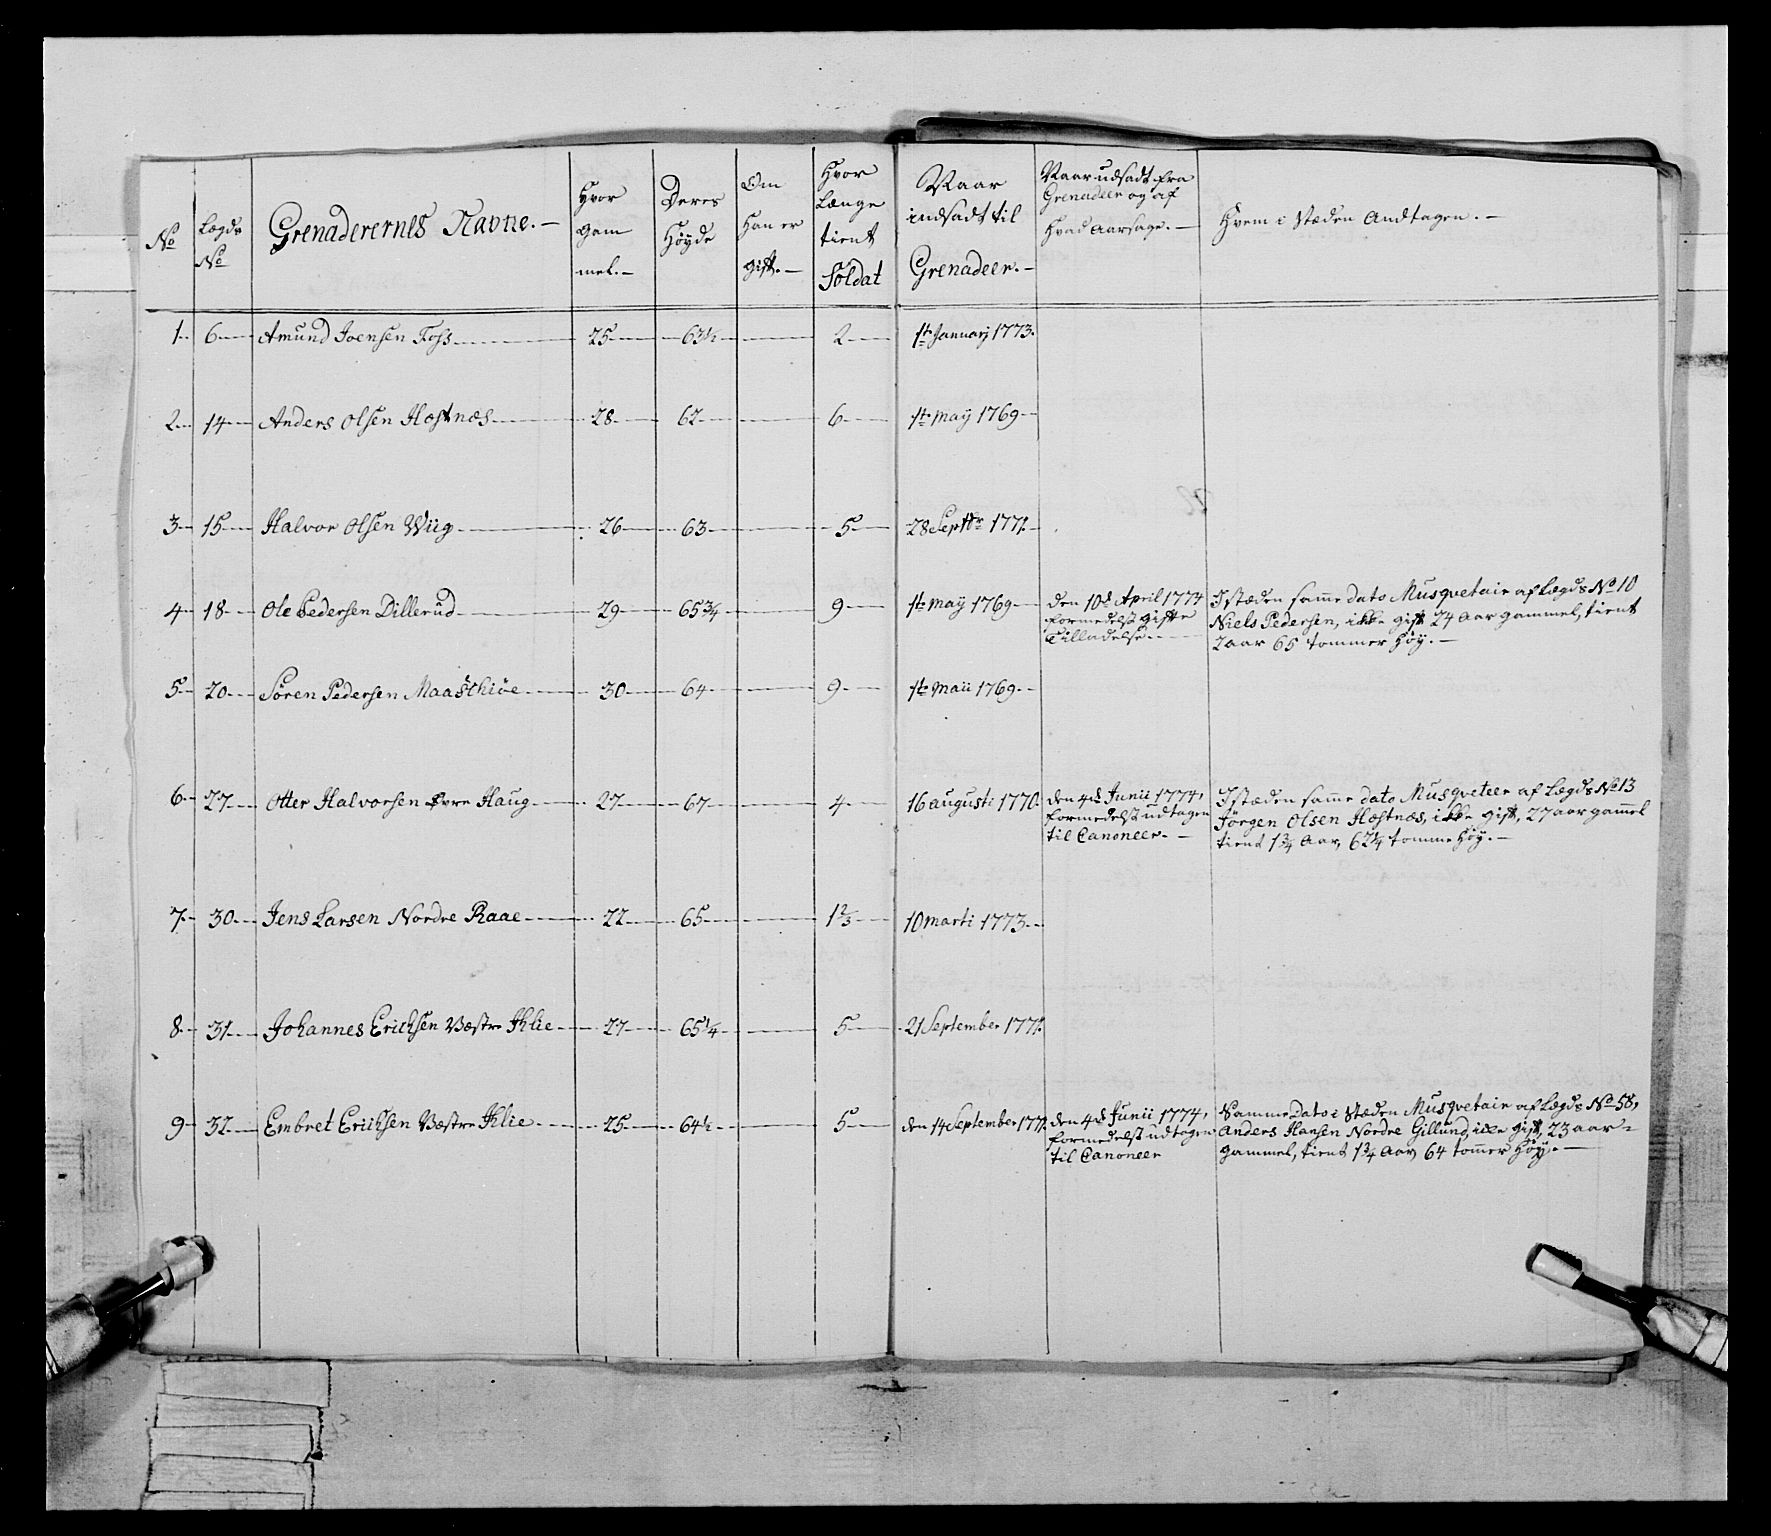 No
Lægds No
Grenaderernes Navne. —
Hvor Gam mel. —
Deres Høyde
Om Han er gift. —
Hvor Længe tient Soldat
Naar indsadt til Grenadeer. —
Naar udsadt fra Grenadeer og af Hvad Aarsage. —
Hvem i Stæden Andtagen. —
1 6 Amund Joensen Foss 25 63½ 2 1te Januarj 1773.
2 14 Anders Olsen Hæstnæs 28 62 6 1te maÿ 1769
3 15 Halvor Olsen Wiig 26 63 5 28 Septbr 1771.
4 18 Ole Pedersen Dillerud 29 65¾ 9 1te maÿ 1769
den 10de April 1774
formedelst gifte
Tilladelse.
I stæden samme dato Musqvetair af Lægds No 10
Niels Pedersen, ikke gift 24 Aar gammel, tient
2 aar 65 tommer Høy. —
5 20 Søren Pedersen Maaschiøe 30 64 9 1te Maii 1769
6 27 Otter Halvorsen Øvre Haug 27 67 4 16 augusti 1770.
den 4de Junii 1774,
formedelst udtagen
til Canoneer. —
I stæden samme dato Musqveteer af Lægds No 13
Jörgen Olsen Hæstnæs, ikke gift, 27 aar gamel
tient 1¾ Aar, 62¼ tomme Høy. —
7 30 Jens Larsen Nordre Raae 22 65 1⅔ 10 marti 1773
8 31 Johannes Erichsen Væstre Ihlie 27 65¼ 5 21 September 1771.
9 32 Embret Erichsen Væstre Ihlie 25 64½ 5 den 14 September 1771.
den 4de Junii 1774,
formedelst udtagen
til Canoneer
Samme Dato i Stæden Musqvetair af Lægds No 58,
Anders Hansen Nordre Gillund, ikke gift, 23 aar
gammel, tient 1¾ Aar 64 tomer Høy. —